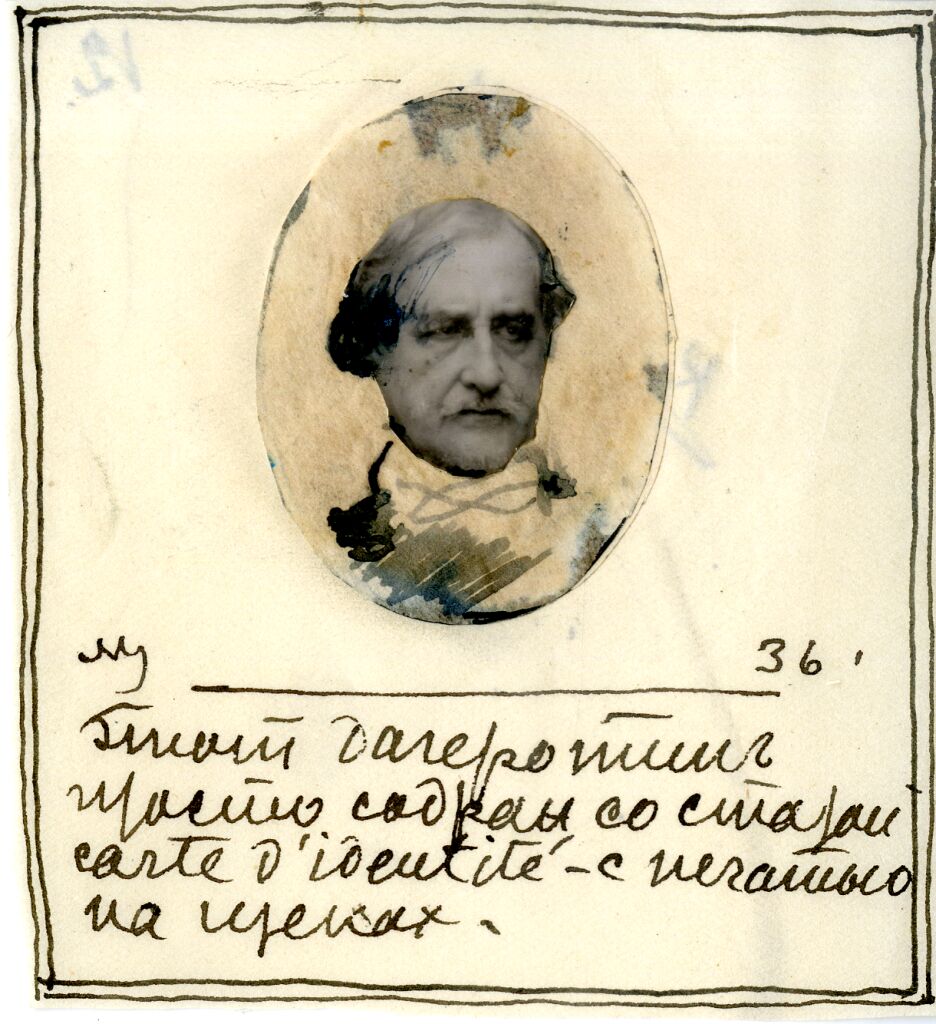 36
Этот дагеротип
просто содран со старой
carte d'identité – с печатью
на щеках.